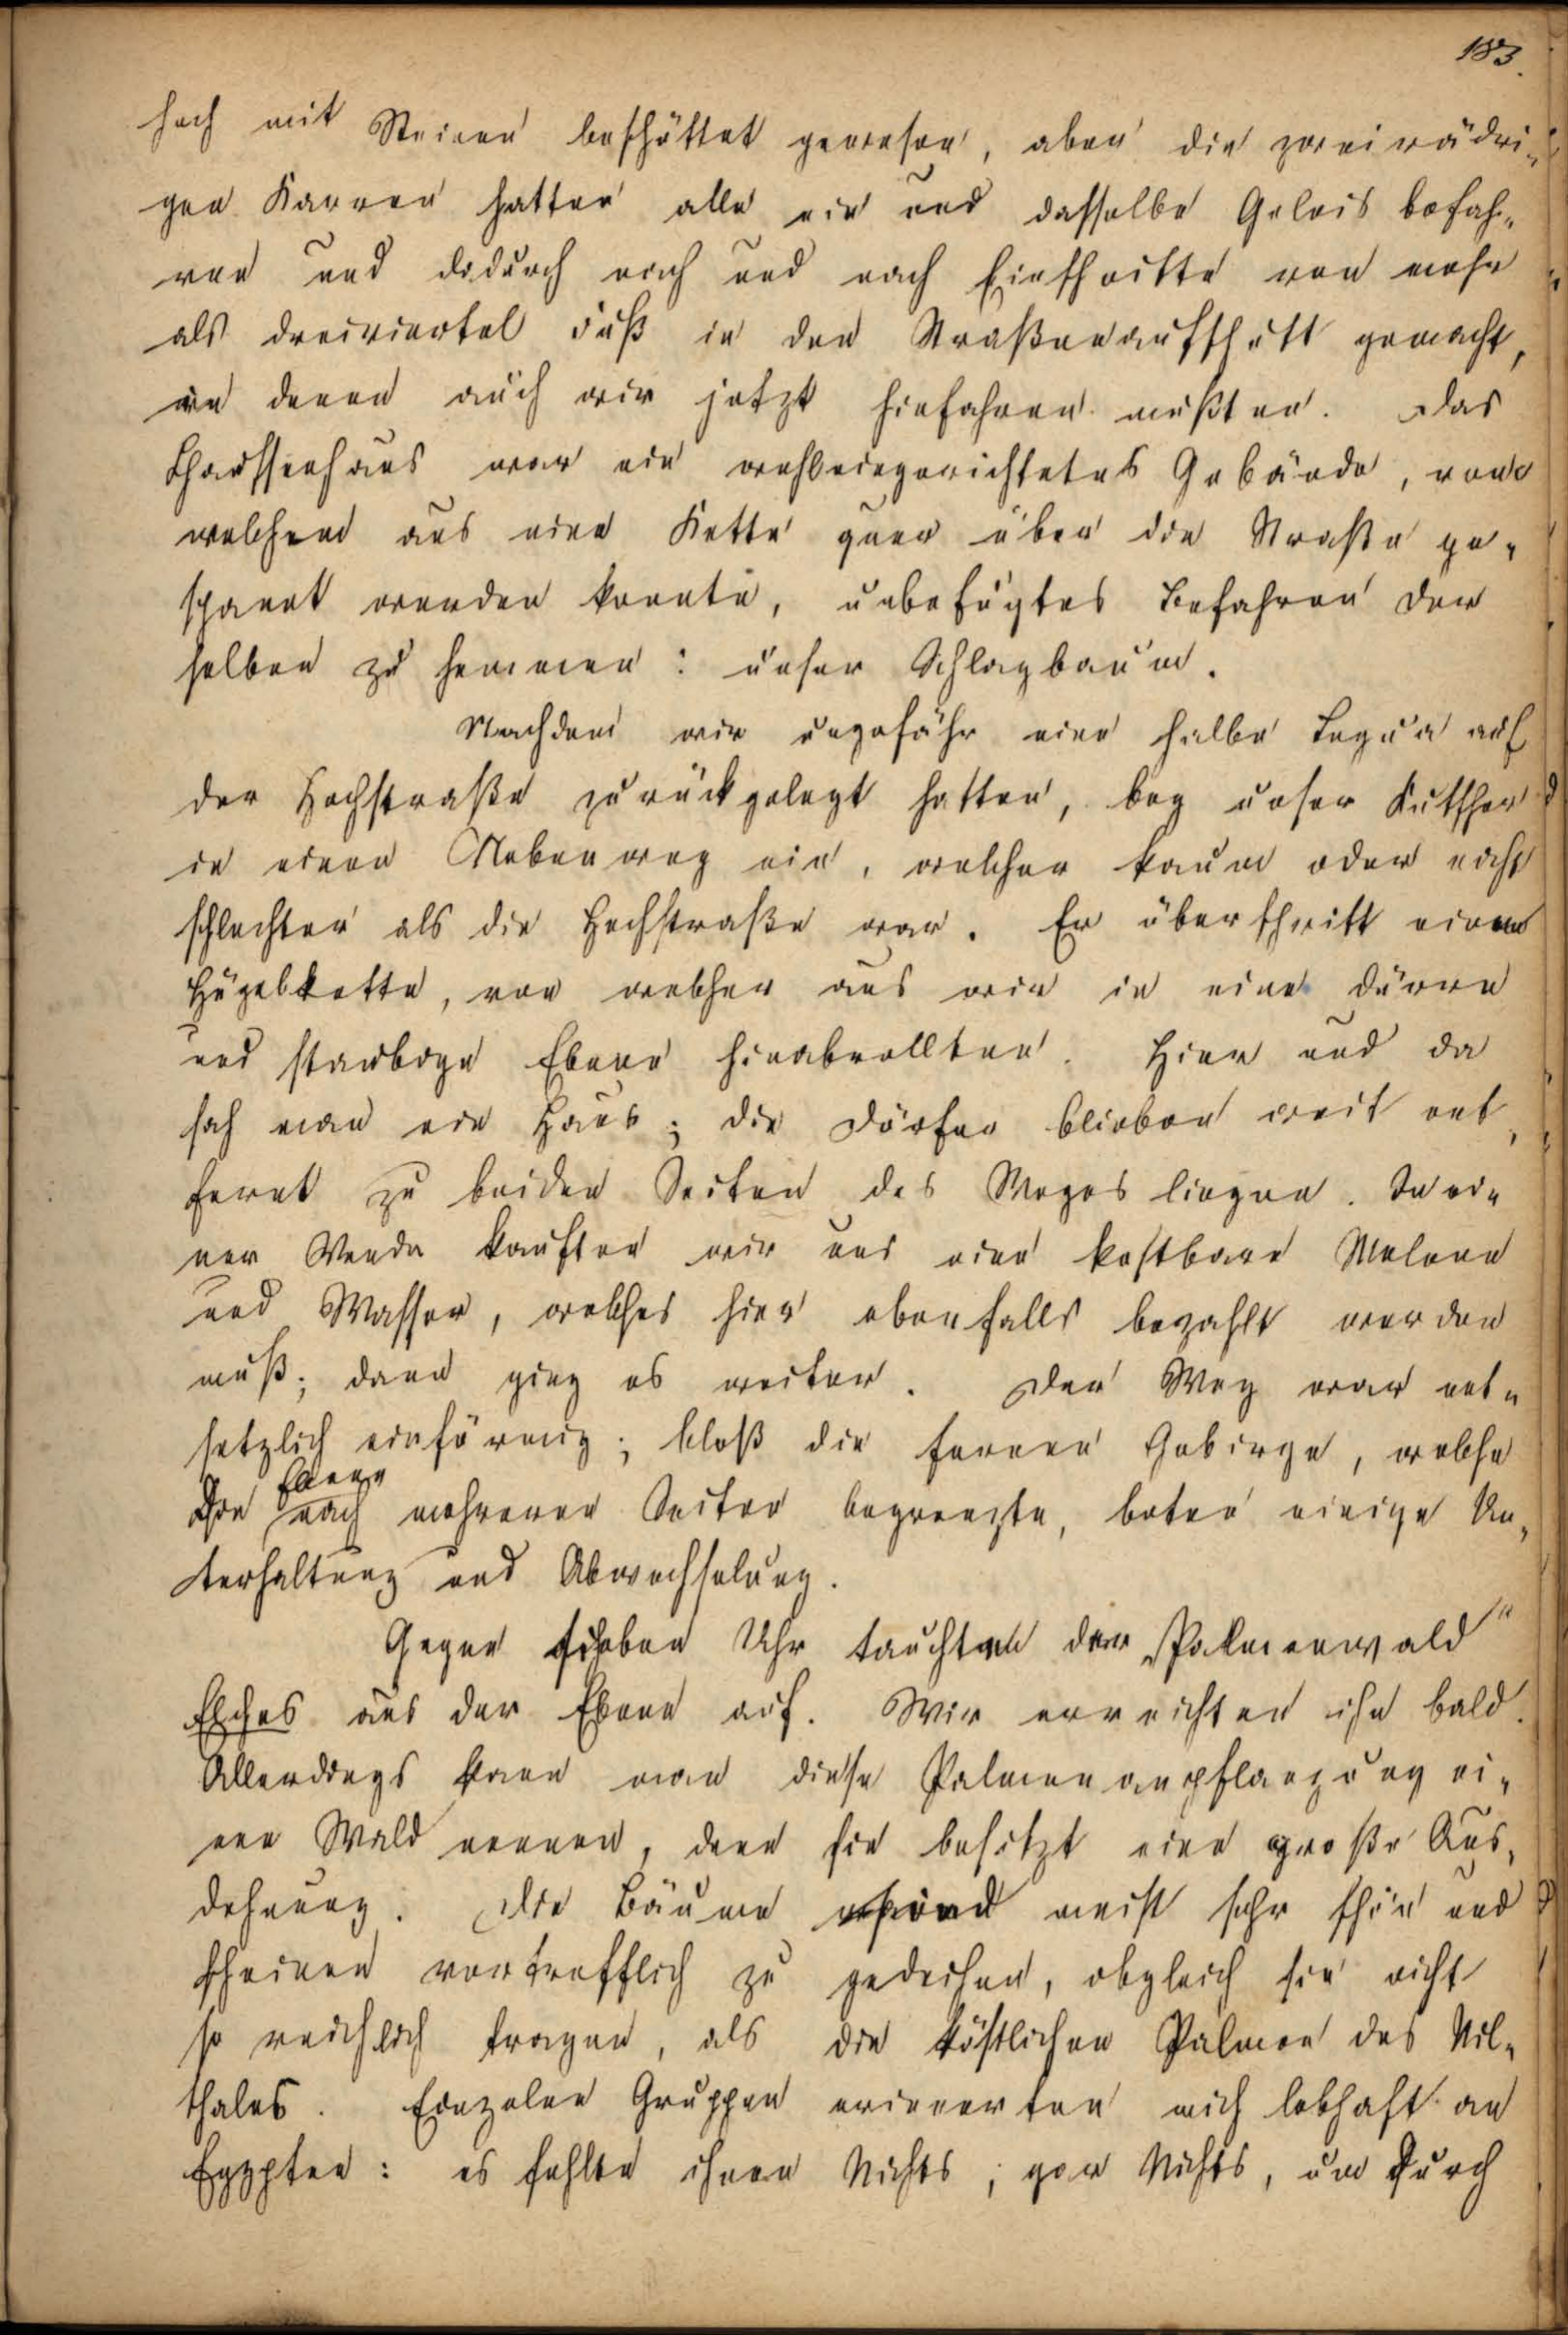 183.
hoch mit Steinen beschüttet gewesen, aber die zweirädri-
gen Karren hatten alle ein und dasselbe Geleis befah-
ren und dadurch nach und nach Einschnitte von mehr
als dreiviertel Fuß in den Straßenaufschutt gemacht,
in denen auch wir jetzt hinfahren mußten. Das
Chausseehaus war ein wohleingerichtetes Gebäude, von
welchem aus eine Kette quer über die Straße ge-
spannt werden konnte, unbefugtes Befahren der
selben zu hemmen: unser Schlagbaum.
Nachdem wir ungefähr eine halbe Legua auf
der Hochstraße zurückgelegt hatten, bog unser Kutscher
in einen Nebenweg ein, welcher kaum oder nicht
schlechter als die Hochstraße war. Er überschritt eine
Hügelkette, von welcher aus wir in eine dürre
und staubige Ebene hinabrollten. Hier und da
sah man ein Haus; die Dörfer blieben weit ent-
fernt zu beiden Seiten des Weges liegen. In ei-
ner Venda kauften wir uns eine kostbare Melone
und Wasser, welches hier ebenfalls bezahlt werden
muß; dann ging es weiter. Der Weg war ent-
setzlich einförmig; bloß die fernen Gebirge, welche
die Ebene nach mehreren Seiten begrenzte, boten einige Un-
terhaltung und Abwechselung.
Gegen sieben Uhr tauchte der „Palmenwald"
Elches aus der Ebene auf. Wir erreichten ihn bald.
Allerdings kann man diese Palmenanpflanzung ei-
nen Wald nennen, denn sie besitzt eine große Aus-
dehnung. Die Bäume sind meist sehr schön und
scheinen vortrefflich zu gedeihen, obgleich sie nicht
so reichlich tragen, als die köstlichen Palmen des Nil-
thales. Einzelne Gruppen erinnerten mich lebhaft an
Egypten: es fehlte ihnen Nichts, gar Nichts, um durch